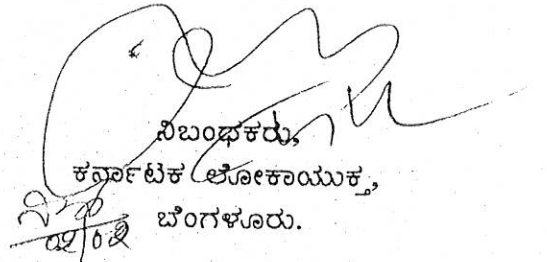 ನಿಬಂಧಕರು,
ಕರ್ನಾಟಕ ಲೋಕಾಯುಕ್ತ,
ಬೆಂಗಳೂರು.